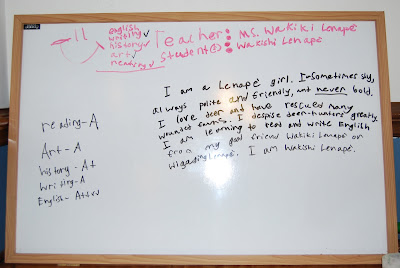 english ✓
writing ✓
history ✓
art ✓
reading ✓
Teacher: Ms. Wakiki Lenapé
Student(s): Wakishi Lenapé
I am a Lenapé girl. I sometimes shy,
always polite and friendly, and never bold.
I love deer and have rescued many
wounded fawns. I despise deer-hunters greatly.
I am learning to read and write English
from my good friend Wakiki Lenapé on
Lenapé. I am Wakishi Lenapé.
reading-A
Art-A
history-A+
Writing-A
English-